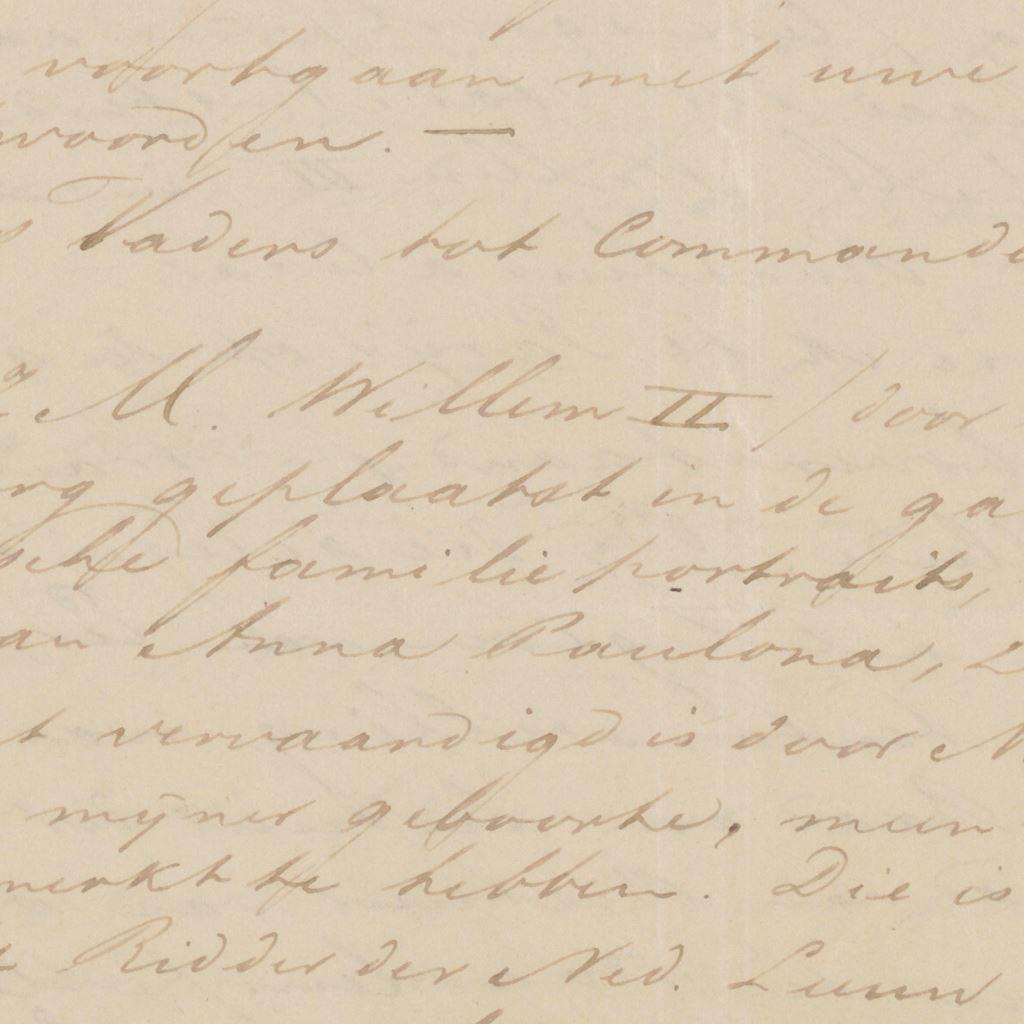 voortgaan met uwe
woorden. —
Vaders tot Commande
Z. M. Willem II / door
rg geplaatst in de ga
sche familie portraits,
an Anna Paulona,
t vervaardigd is door
mijner geboorte, meen
merkt te hebben. Die is
Ridder der Ned. Leeuw